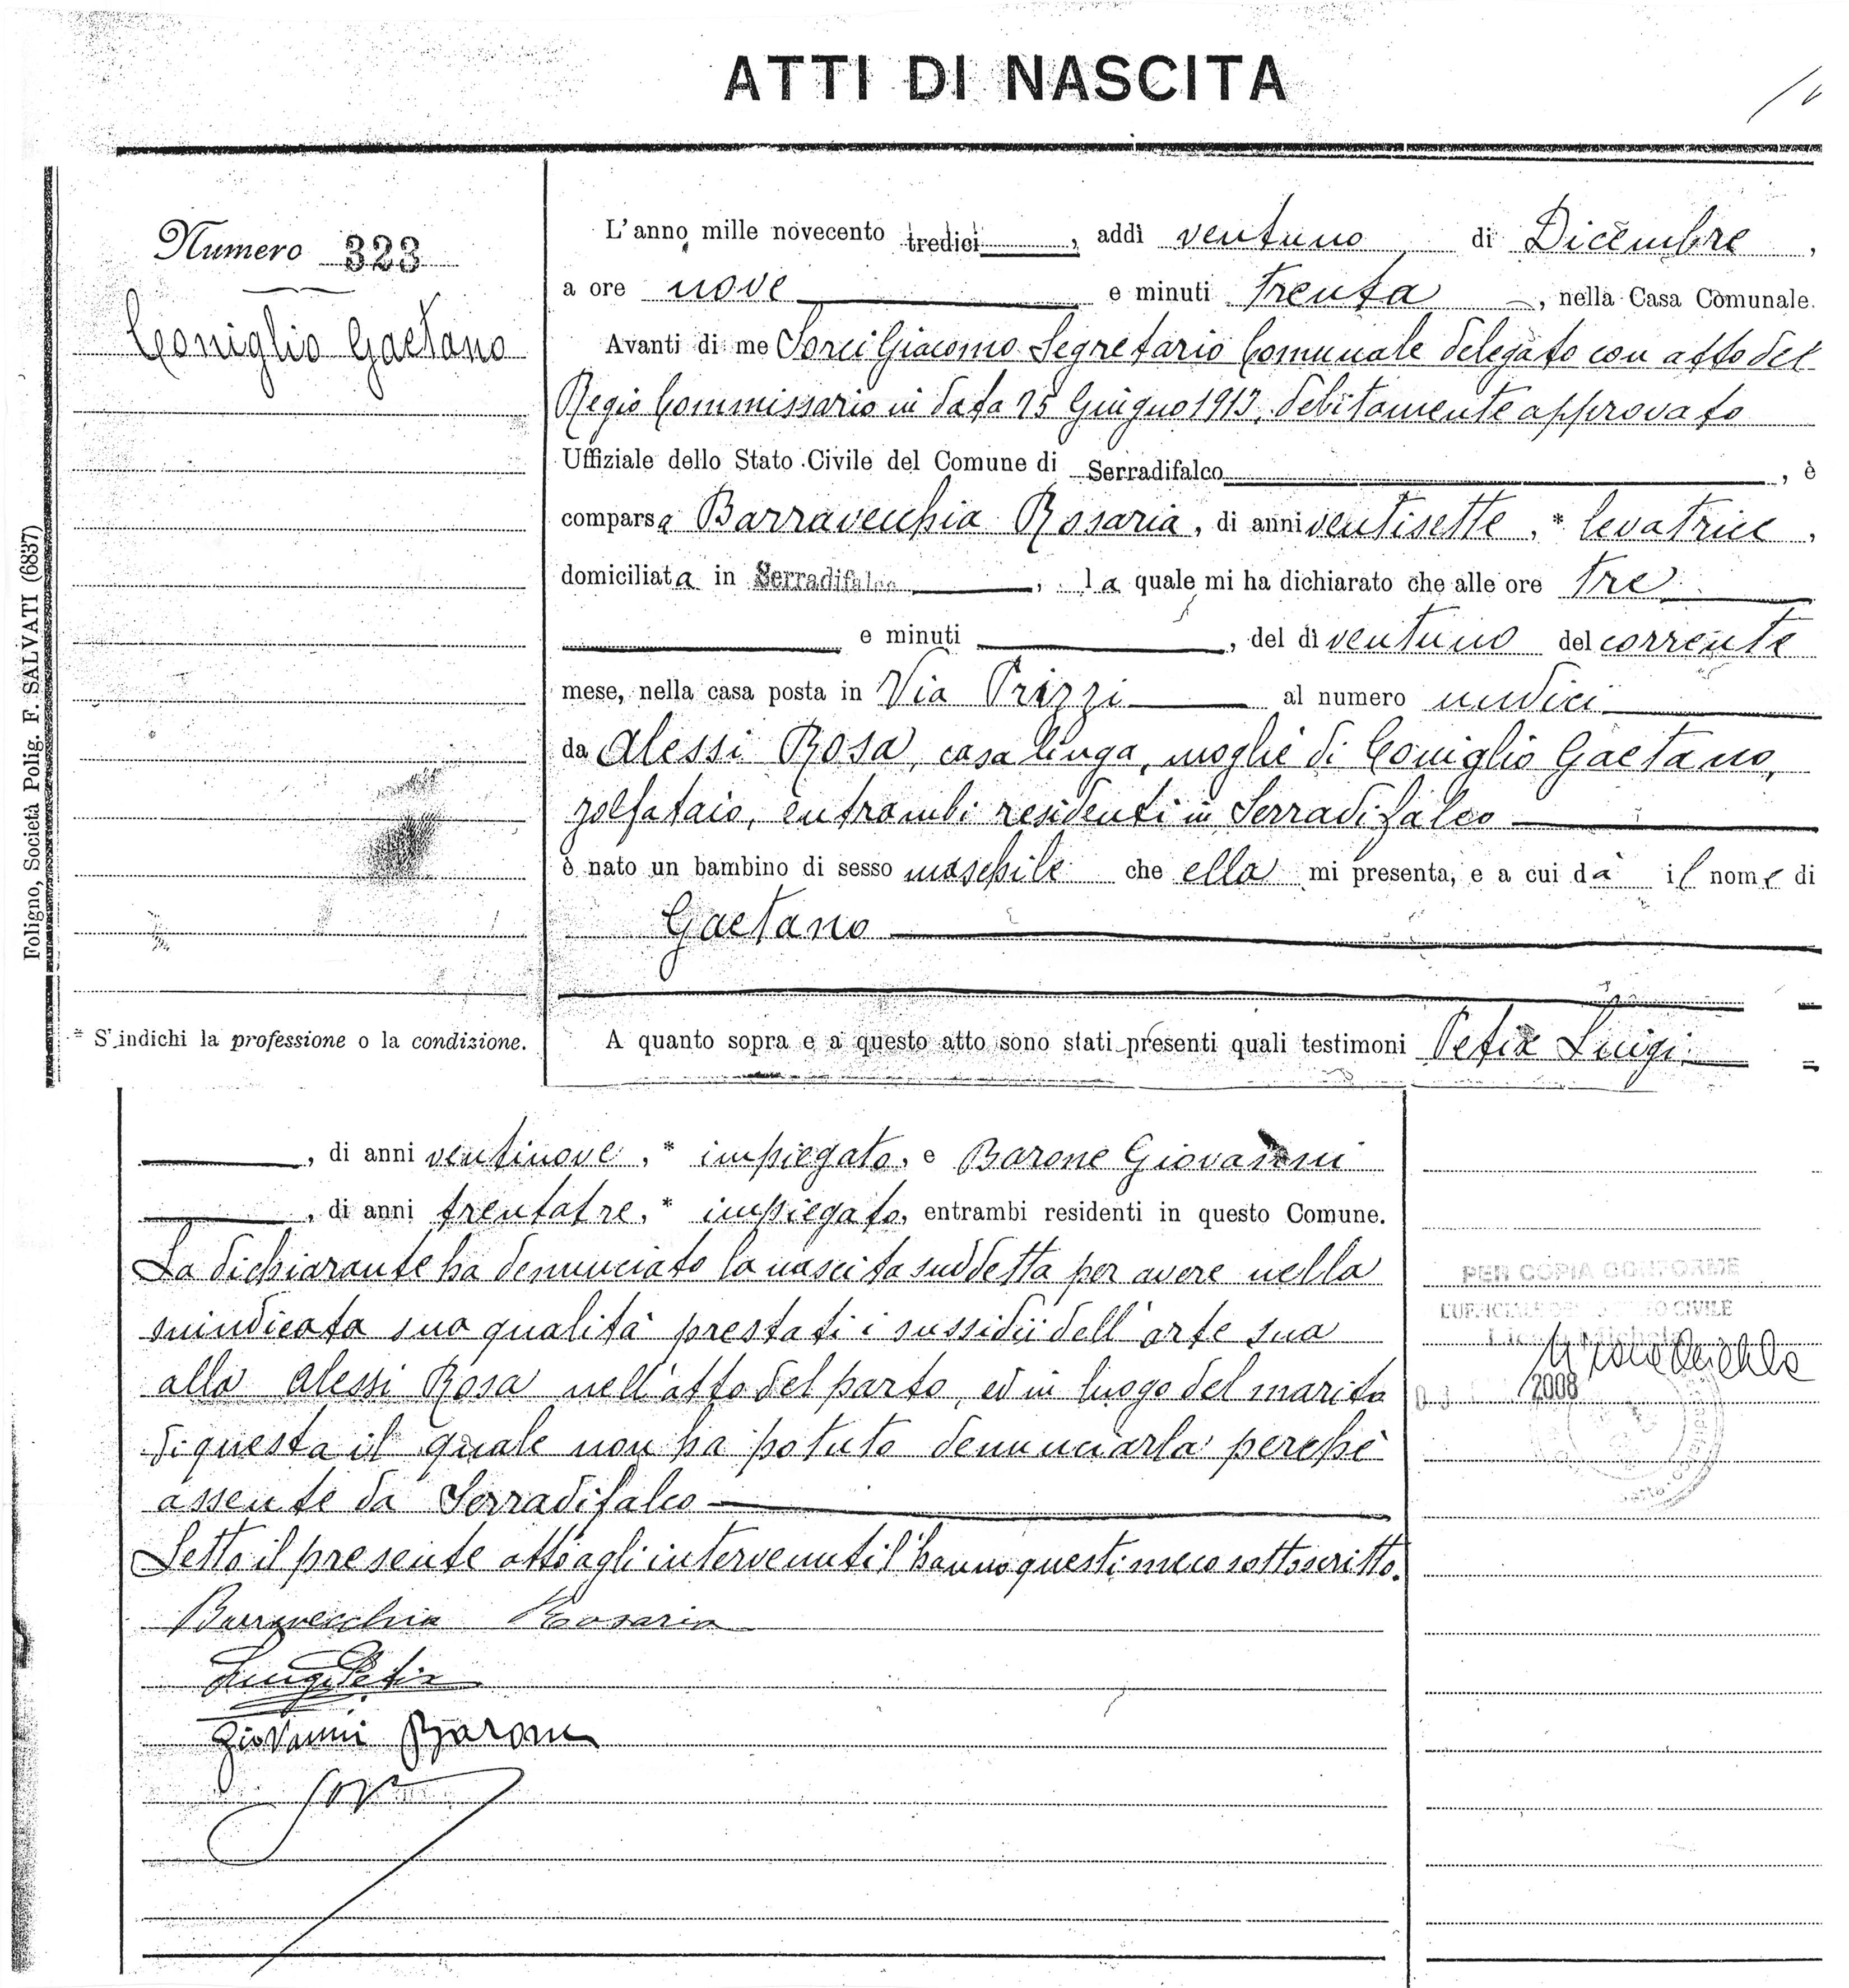 ATTI DI NASCITA
Numero 323
Coniglio Gaetano
L'anno mille novecento tredici, addì ventuno di Dicembre,
a ore nove e minuti trenta, nella Casa Comunale.
Avanti di me Sorci Giacomo Segretario Comunale delegato con atto del
Regio Commissario in data 15 Giugno 1913, debitamente approvato
Uffiziale dello Stato Civile del Comune di Serradifalco, è
comparsa Barravecchia Rosaria, di anni ventisette, * levatrice,
domiciliata in Serradifalco, la quale mi ha dichiarato che alle ore tre
e minuti , del dì ventuno del corrente
mese, nella casa posta in Via Prizzi al numero undici
da Alessi Rosa, casalinga, moglie di Coniglio Gaetano,
zolfataio, entrambi residenti in Serradifalco
è nato un bambino di sesso maschile che ella mi presenta, e a cui dà il nome di
Gaetano
* S'indichi la professione o la condizione.
A quanto sopra e a questo atto sono stati presenti quali testimoni Petix Luigi
Foligno, Società Polig. F. SALVATI (6837)
, di anni ventinove, * impiegato, e Barone Giovanni
, di anni trentatre, * impiegato, entrambi residenti in questo Comune.
La dichiarante ha denunciato la nascita suddetta per avere nella
suindicata sua qualità prestati i sussidii dell'arte sua
alla Alessi Rosa nell'atto del parto, ed in luogo del marito
di questa il quale non ha potuto denunciarla perchè
assente da Serradifalco
Letto il presente atto agli intervenuti l'hanno questi meco sottoscritto.
Barravecchia Rosaria
Luigi Petix
Giovanni Barone
PER COPIA CONFORME
L'UFFICIALE DELLO STATO CIVILE
2008